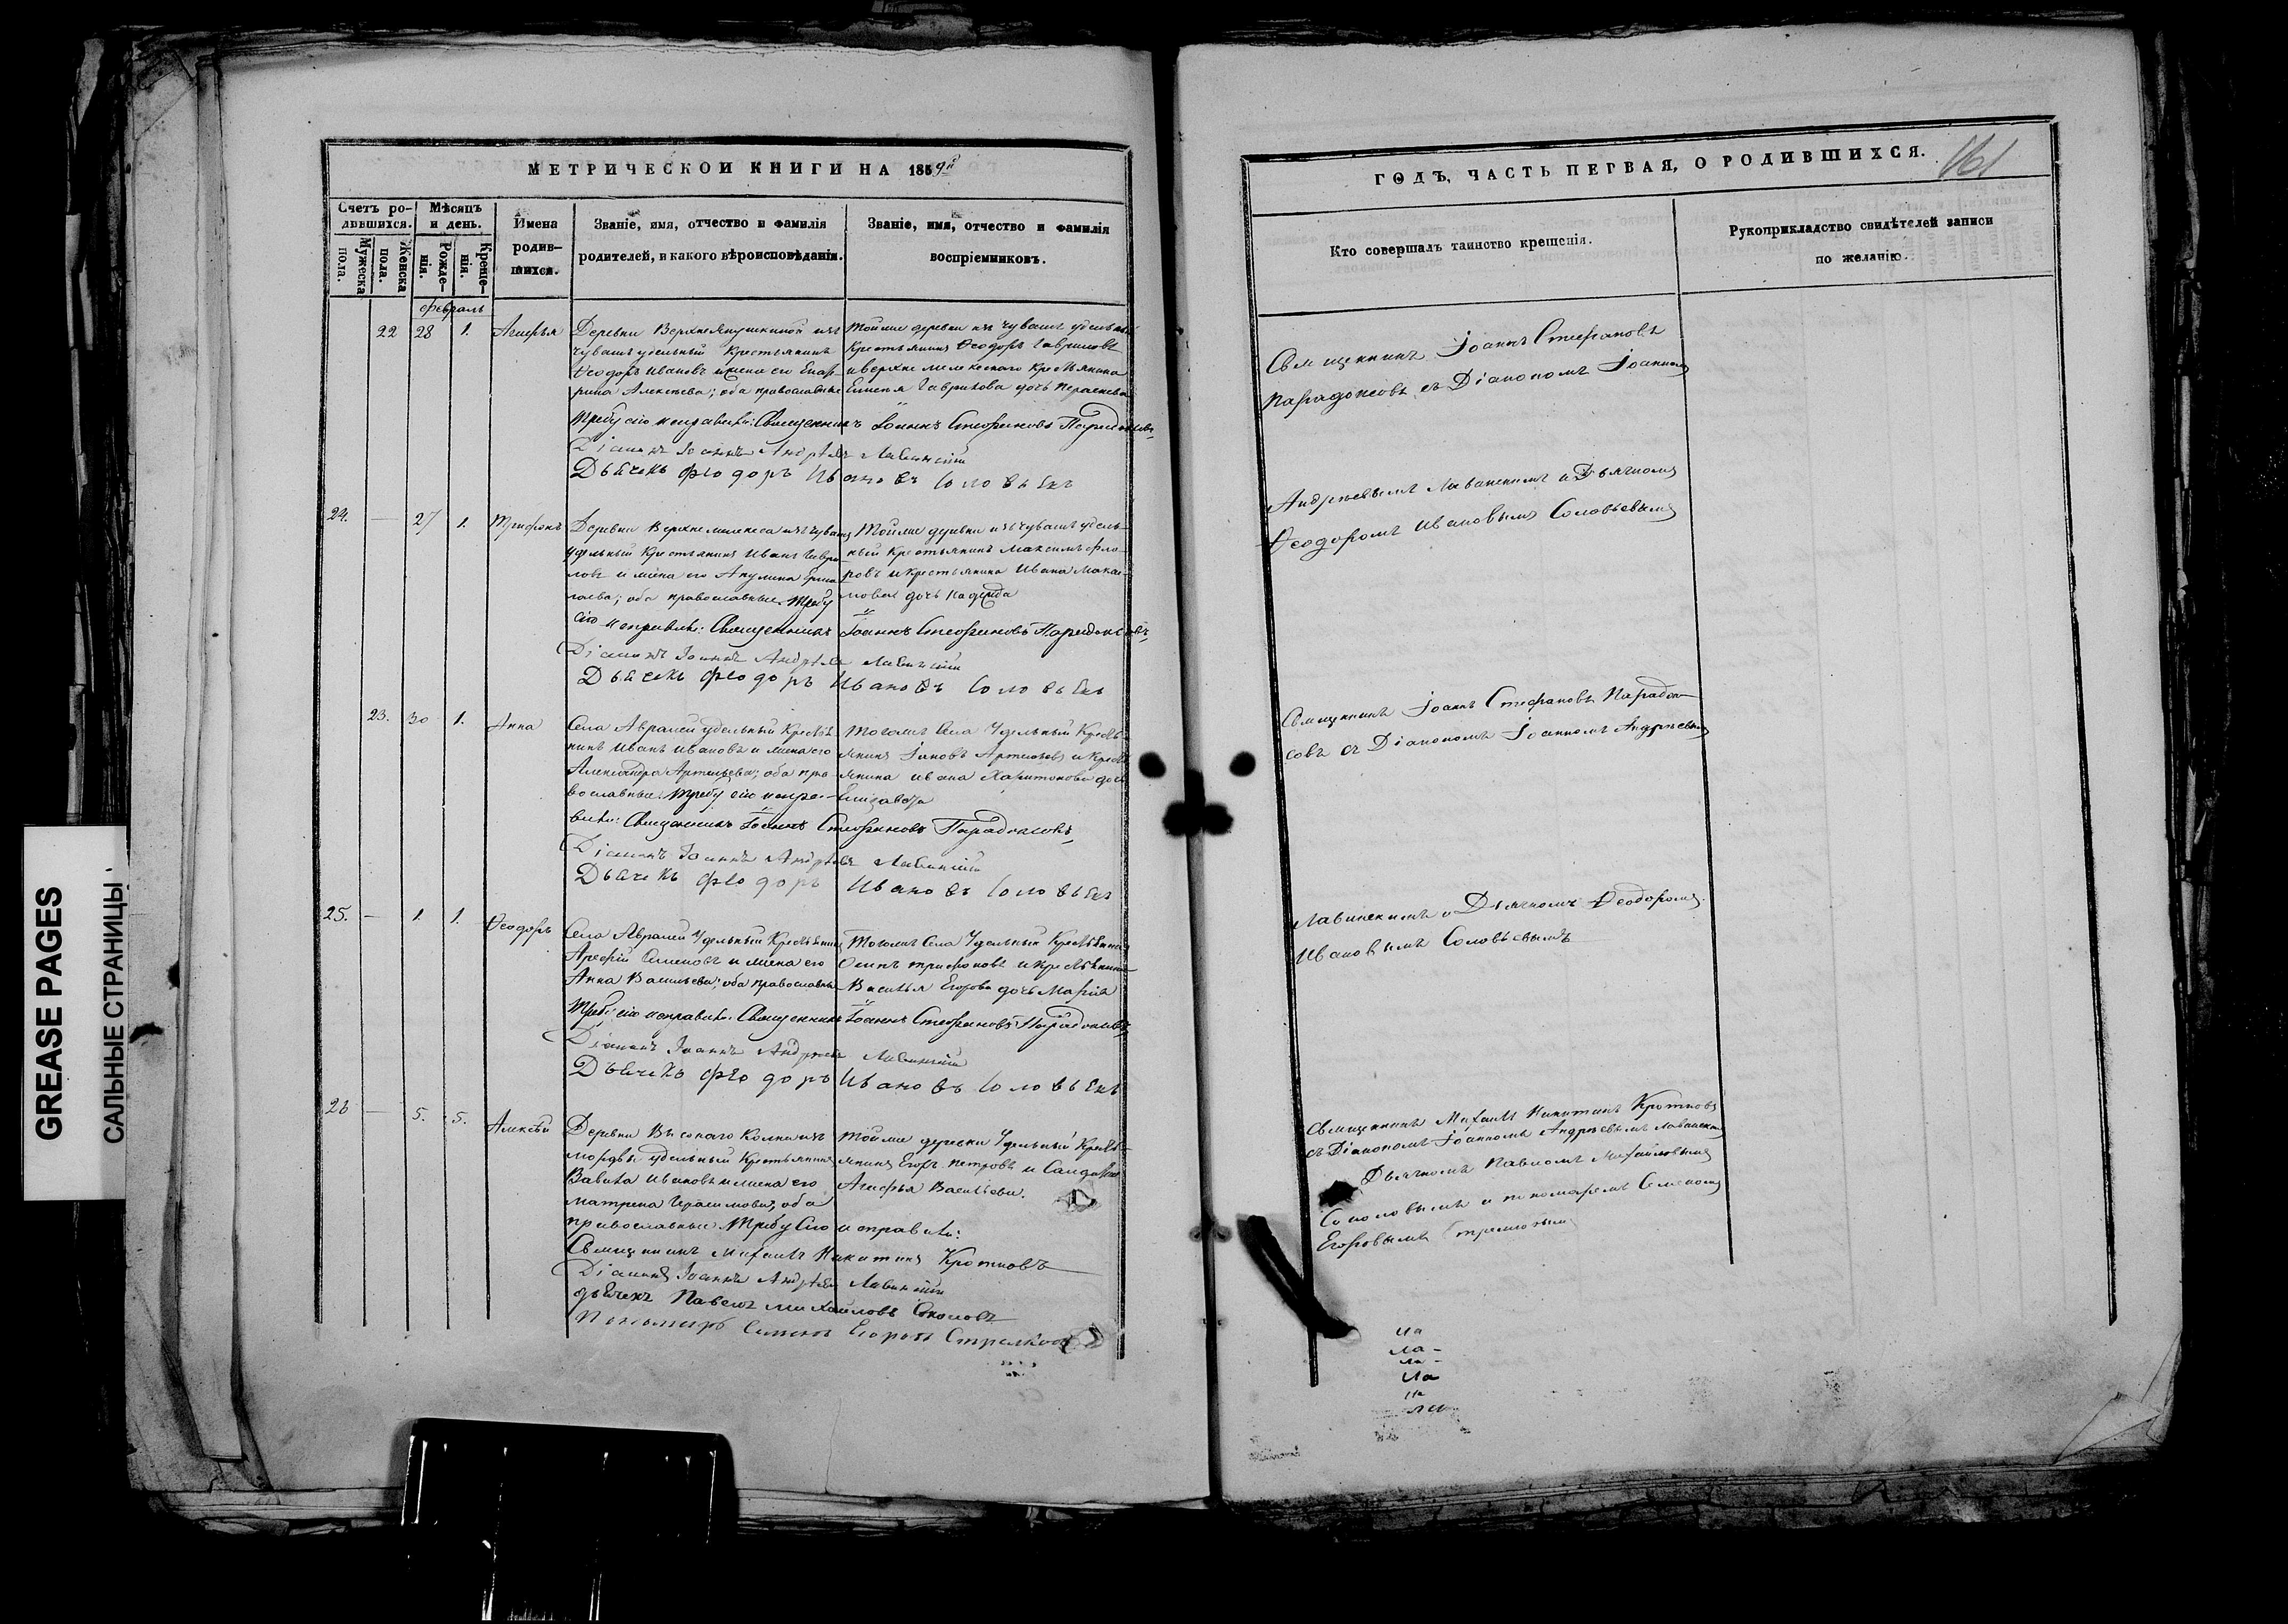 МЕТРИЧЕСКОЙ КНИГИ НА 1859й
Счетъ ро-
дившихся.
Мужеска
пола.
Женска
пола.
Мѣсяцъ
и день.
Рожде-
нія.
Креще-
нія.
Имена
родив-
шихся.
Званіе, имя, отчество и фамилія
родителей, и какого вѣроисповѣданія.
Званіе, имя, отчество и фамилія
воспріемниковъ.
февраль
22 28 1. Агафья
Деревни Верхне Якушкиной изъ
чувашъ удельный Крестьянинъ
Ѳеодоръ Ивановъ и жена его Екате-
рина Алексѣева; оба православные
Тойже деревни изъ чувашъ удельный
Крестьянинъ Ѳеодоръ Гавриловъ
и верхне мелекескаго
Гаврилова дочь
Требу сію исправили: Священникъ Іоаннъ Стефановъ Парадоксовъ,
Діаконъ Іоаннъ Андреевъ Лавинскій
Дьячекъ Фѣодоръ Ивановъ Соловьевъ
24. — 27 1. Трифонъ
Деревни Верхне мелекеса изъ чувашъ
удельный Крестьянинъ Иванъ Гаври-
ловъ и жена его Акулина
оба православные. Требу
Тойже деревни изъ чувашъ удель-
ный Крестьянинъ Максимъ Фло-
ровъ и крестьянина Ивана Макси-
мова дочь Надежда
сію исправили: Священникъ Іоаннъ Стефановъ Парадоксовъ,
Діаконъ Іоаннъ Андреевъ Лавинскій
Дьячекъ Фѣодоръ Ивановъ Соловьевъ
23. 30 1. Анна
Села Авралей удельный Крестья-
нинъ Иванъ Ивановъ и жена его
Александра Артемьева; оба пра-
вославные. Требу сію испра-
Тогоже Села Удельный Кресть-
янинъ Іаковъ Артемьевъ и Кресть-
янина Ивана Харитонова дочь
Елизавета
вили: Священникъ Іоаннъ Стефановъ Парадоксовъ,
Діаконъ Іоаннъ Андреевъ Лавинскій
Дьячекъ Фѣодоръ Ивановъ Соловьевъ
25. — 1. 1. Ѳеодоръ
Села Авралей Удельный Крестьянинъ
Арефій Семеновъ и жена его
Анна Васильева; оба православные
Тогоже Села Удельный Крестьянинъ
Осипъ Трифоновъ и Крестьянина
Василья Егорова дочь Марія
Требу сію исправили: Священникъ Іоаннъ Стефановъ Парадоксовъ,
Діаконъ Іоаннъ Андреевъ Лавинскій
Дьячекъ Фѣодоръ Ивановъ Соловьевъ
26 — 5. 5. Алексѣй
Деревни Высокаго Колка изъ
мордвы удельный Крестьянинъ
Вавила Ивановъ и жена его
Матрена Герасимова, оба
Тойже деревни Удельный Кресть-
янинъ Егоръ Петровъ и Солдатка
Агафья Васильева.
православные Требу Сію исправили:
Священникъ Михаилъ Никитинъ Кротковъ
Діаконъ Іоаннъ Андреевъ Лавинскій
дьячекъ Павелъ Михайловъ Соколовъ
Пономарь Семенъ Егоровъ Стрелковъ
ГОДЪ, ЧАСТЬ ПЕРВАЯ, О РОДИВШИХСЯ.
161
Кто совершалъ таинство крещенія.
Рукоприкладство свидѣтелей записи
по желанію.
Священникъ Іоаннъ Стефановъ
Парадоксовъ съ Діакономъ Іоанномъ
Андреевымъ Лавинскимъ и Дьячкомъ
Ѳеодоромъ Ивановымъ Соловьевымъ
Священникъ Іоаннъ Стефановъ Парадок-
совъ съ Діакономъ Іоанномъ Андреевымъ
Лавинскимъ и Дьячкомъ Ѳеодоромъ
Ивановымъ Соловьевымъ
Священникъ Михаилъ Никитинъ Кротковъ
съ Діакономъ Іоанномъ Андреевымъ Лавинскимъ
Дьячкомъ Павломъ Михайловымъ
Соколовымъ и пономаремъ Семеномъ
Егоровымъ Стрелковымъ
GREASE PAGES
САЛЬНЫЕ СТРАНИЦЫ